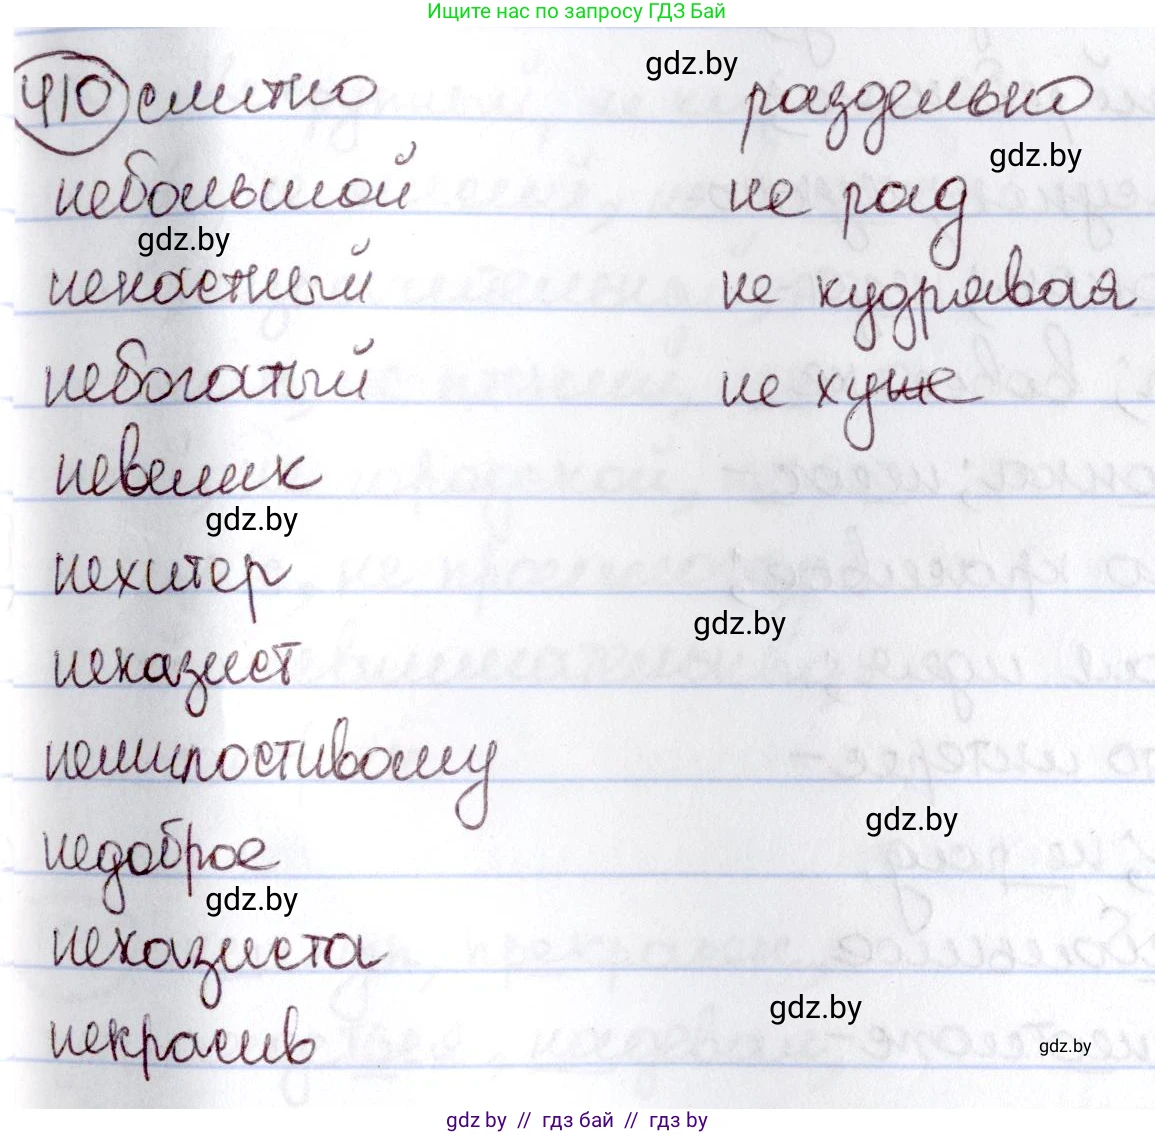 Ищите нас по запросу ГДЗ Бай
410 слитно раздельно
gdz.by
gdz.by
небольшой не рад
gdz.by
ненастный не кудрявая
небогатый не хуже
невелик
gdz.by
нехитер
gdz.by
неказист
немилостивому
gdz.by
недоброе
gdz.by
неказиста
gdz.by
некрасив
gdz.by
gdz by // гдз бай // гдз by